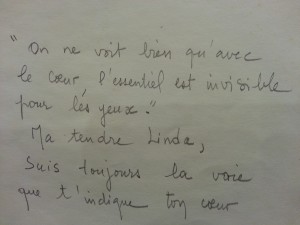 "On ne voit bien qu'avec
le cœur l'essentiel est invisible
pour les yeux."
Ma tendre Linda,
Suis toujours la voie
que t'indique ton cœur